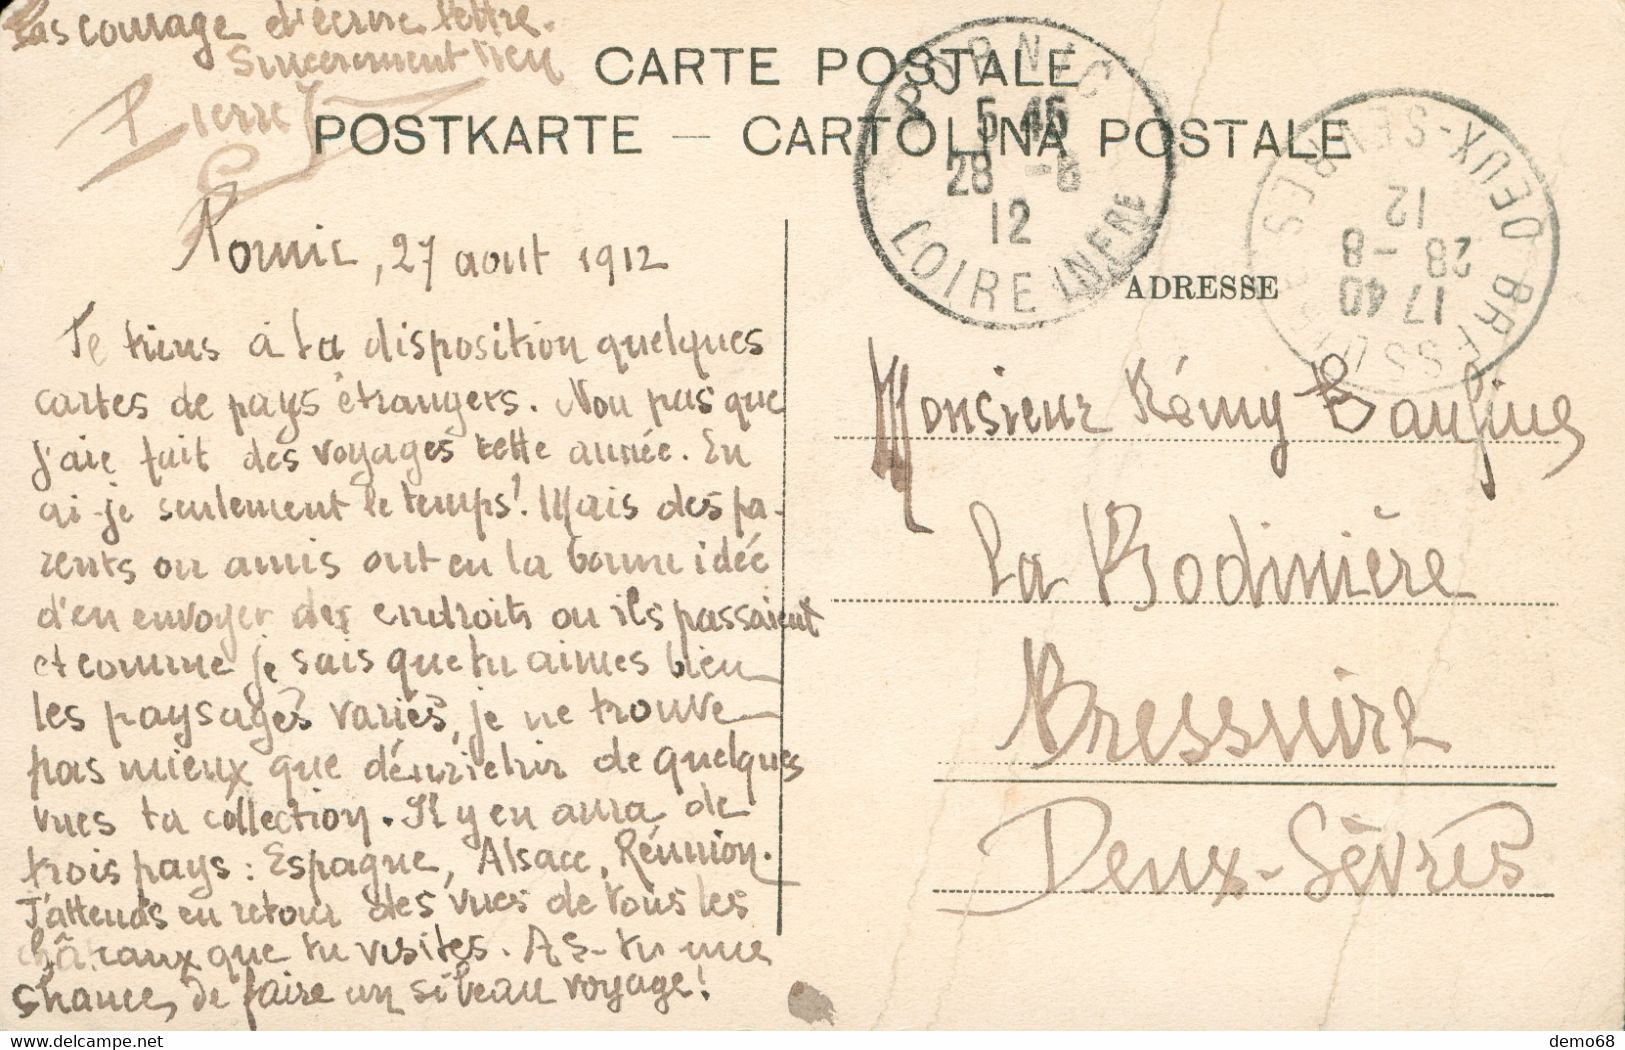 Pas courage d'écrire lettre.
Sincèrement tien
Pierre
CARTE POSTALE
POSTKARTE — CARTOLINA POSTALE
PORNIC
5 45
28 -8
12
LOIRE INFRE
BRESSUIRE DEUX-SEVRES
17 40
28 -8
12
ADRESSE
Pornic, 27 aout 1912
Je tiens à ta disposition quelques
cartes de pays étrangers. Non pas que
j'aie fait des voyages cette année. En
ai-je seulement le temps! Mais des pa-
rents ou amis ont eu la bonne idée
d'en envoyer des endroits ou ils passaient
et comme je sais que tu aimes bien
les paysages variés, je ne trouve
pas mieux que d'enrichir de quelques
vues ta collection. Il y en aura de
trois pays : Espagne, Alsace, Réunion.
J'attends en retour des vues de tous les
châteaux que tu visites. As-tu une
chance, de faire un si beau voyage!
Monsieur Rémy
La Bodinière
Bressuire
Deux-Sèvres
www.delcampe.net
demo68